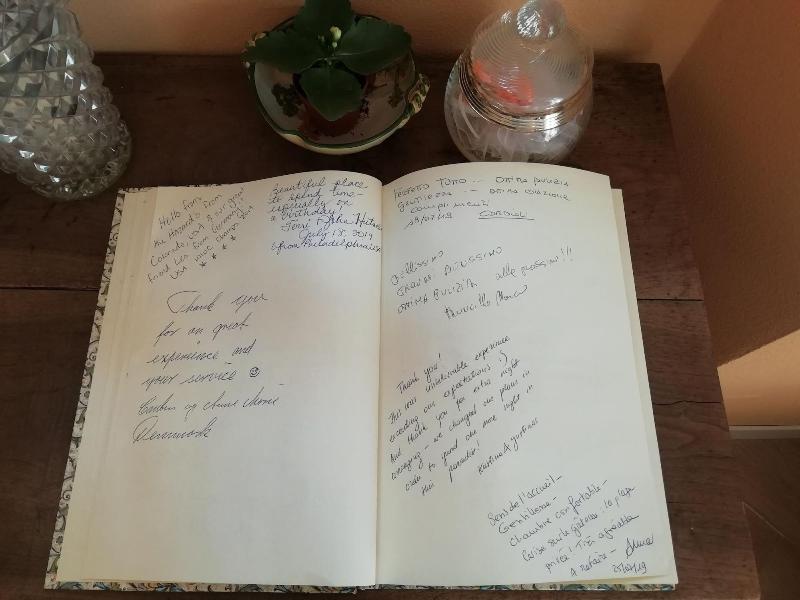 Hello from
the Hazards from
Colorado, USA & our good
friend
USA
* * * *
Beautiful place
to spend time -
especially on
a birthday!
Terri & John
July 18, 2019
from Philadelphia
Thank you
for an great
experience and
your service ☺
Denmark
PERFETTO TUTTO ... OTTIMA PULIZIA
GENTILEZZA ... OTTIMA COLAZIONE
COMPLIMENTI
19/07/19
BELLISSIMO
GRAZIE BELLISSIMO
OTTIMA PULIZIA alle prossime!!!
Thank you!
This was unbelievable experience
exceeding our expectations :)
And thank you for extra night
arranging - we changed our plans in
order to spend one more night in
this paradise!
Sens de l'accueil -
Gentillesse -
Chambre confortable -
Cerise sur le gâteau : la plage
privée ! Très agréable
A refaire -
25/07/19